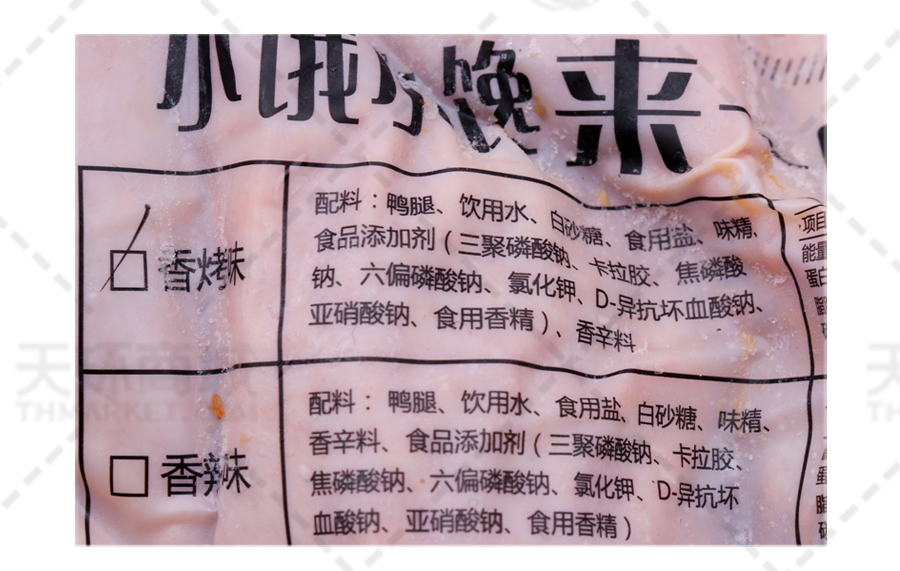 小饿小馋来
香烤味
配料：鸭腿、饮用水、白砂糖、食用盐、味精、
食品添加剂（三聚磷酸钠、卡拉胶、焦磷酸
钠、六偏磷酸钠、氯化钾、D-异抗坏血酸钠、
亚硝酸钠、食用香精）、香辛料
项目
能量
蛋白
香辣味
配料：鸭腿、饮用水、食用盐、白砂糖、味精、
香辛料、食品添加剂（三聚磷酸钠、卡拉胶、
焦磷酸钠、六偏磷酸钠、氯化钾、D-异抗坏
血酸钠、亚硝酸钠、食用香精）